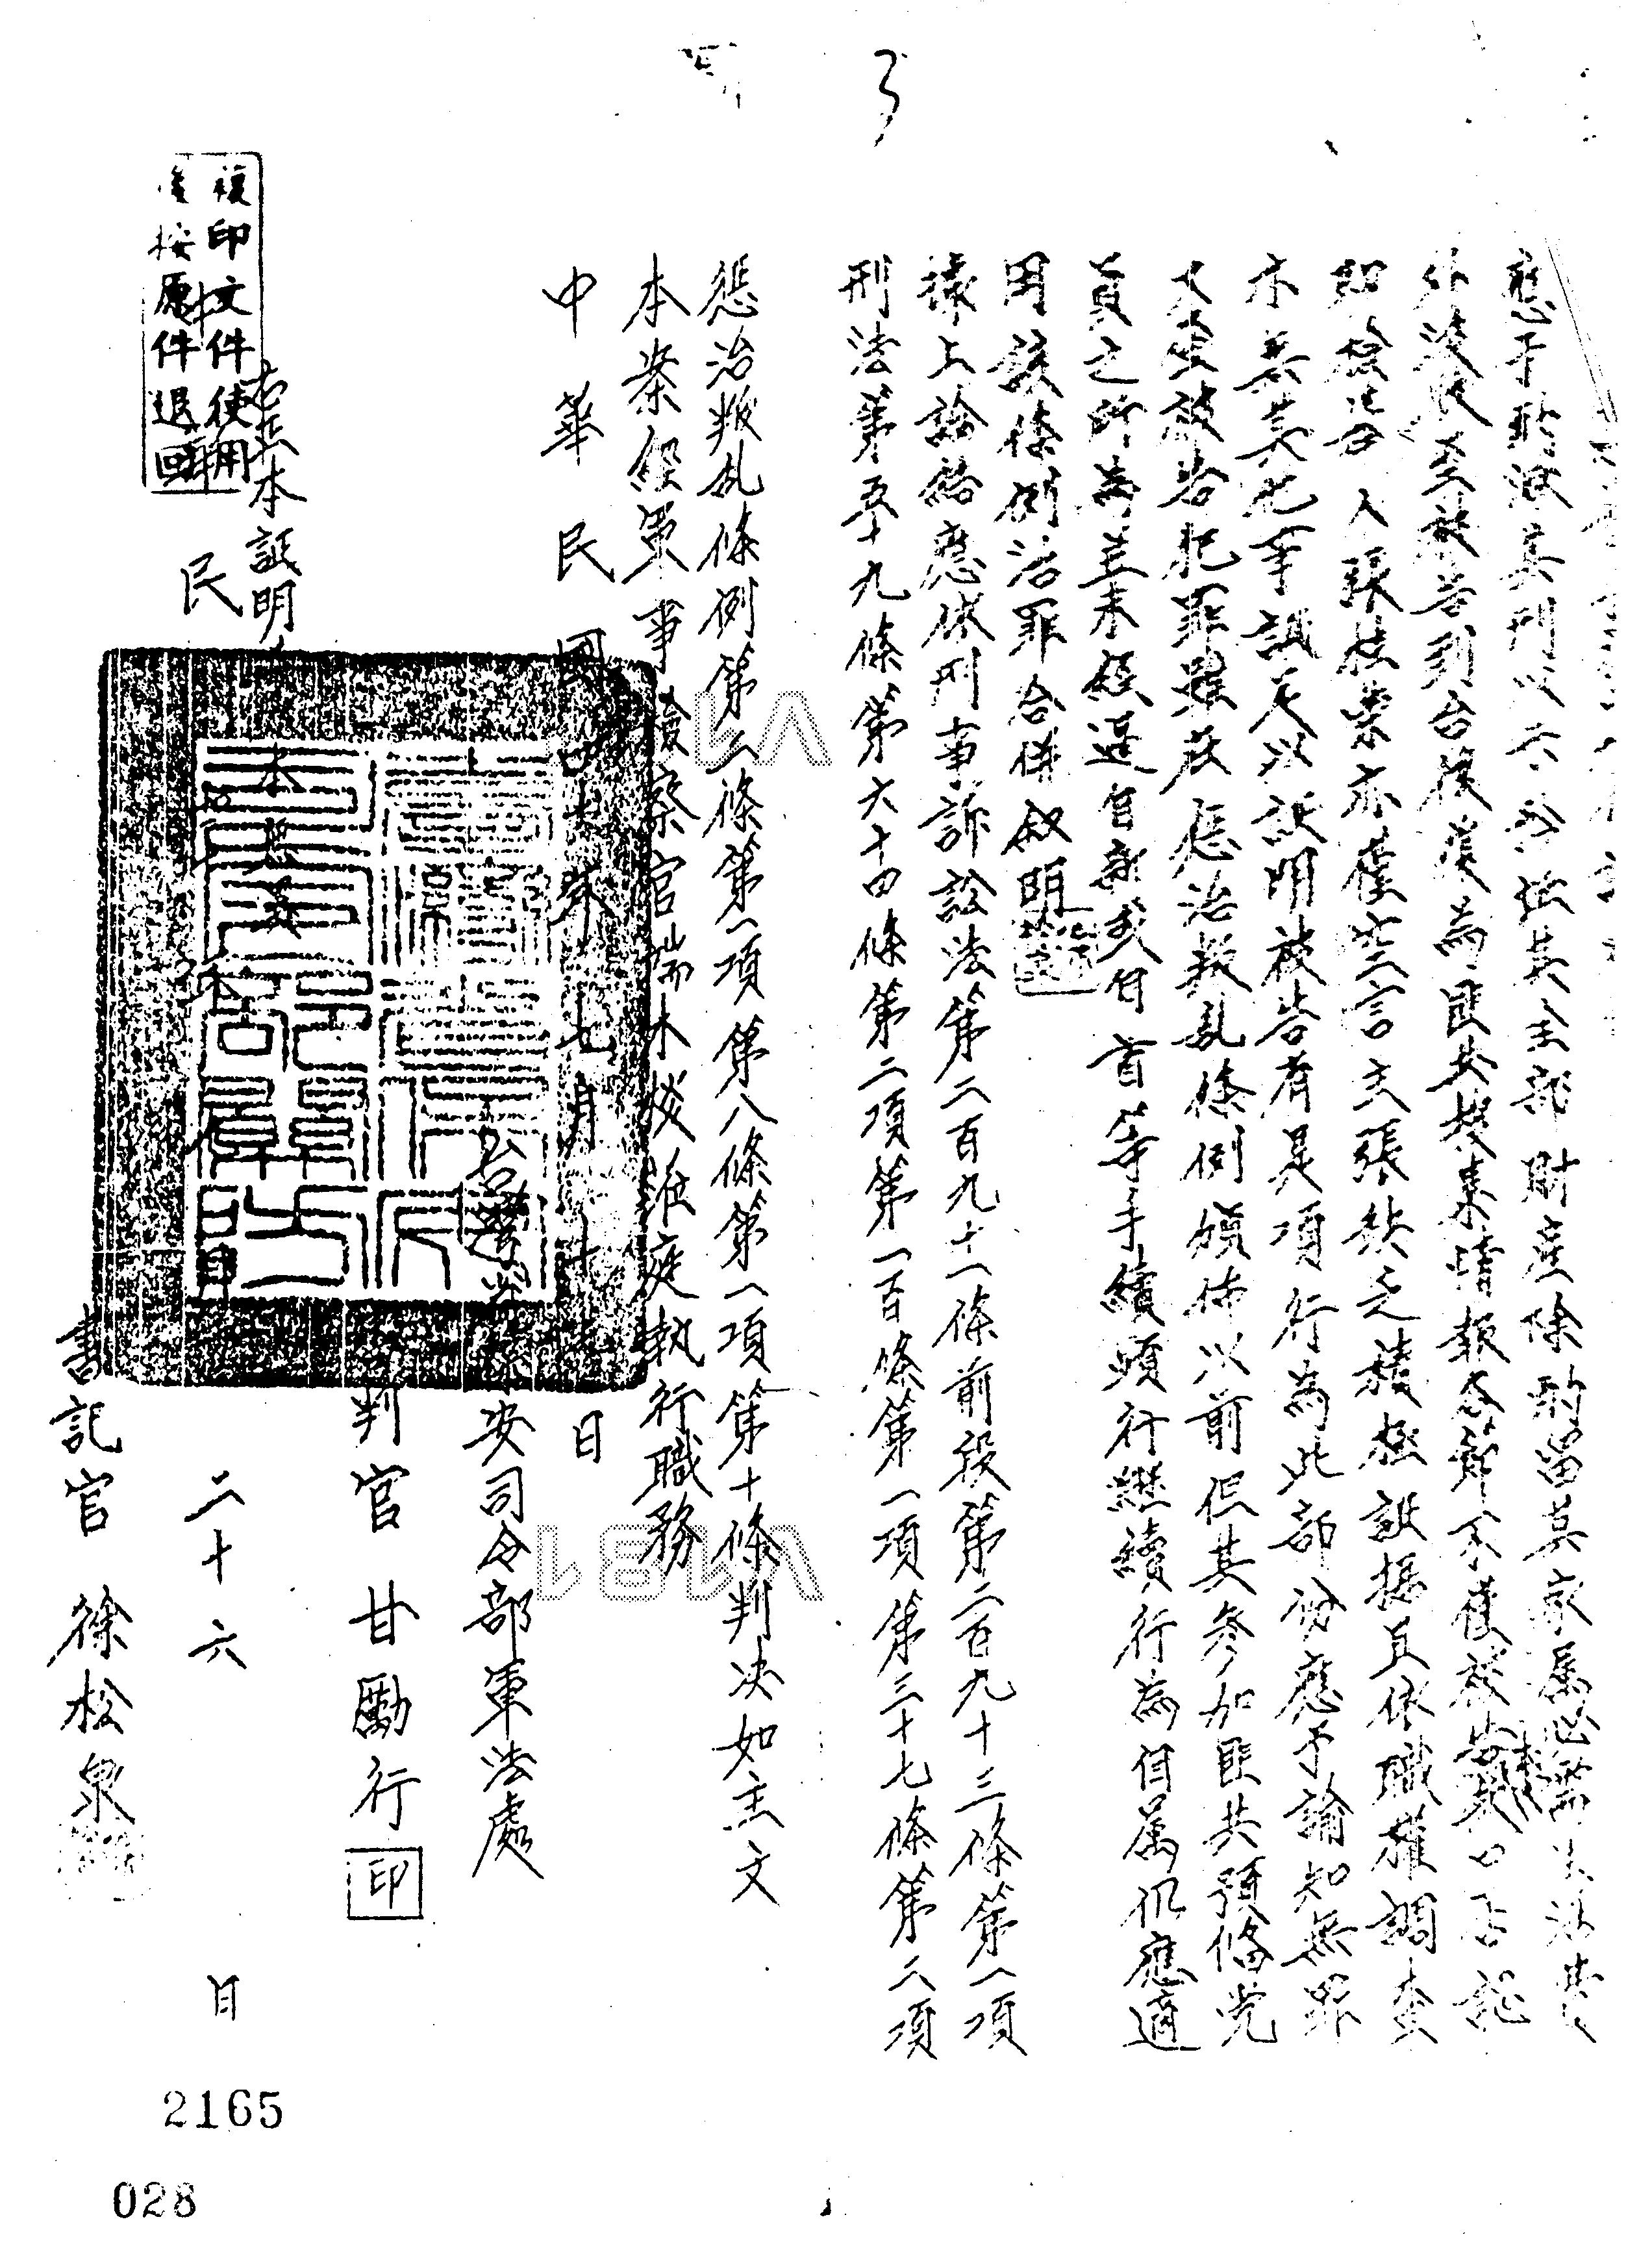 3
應予酌減其刑以六 其全部財產除酌留其家屬必需生活費
外沒收至被告到台後復為匪共搜集情報各節不僅被告矢口否認
即檢舉人張枝業亦僅空言主張缺乏積極證據且依職權調查
亦無其他事證足以證明被告有是項行為此部份應予諭知無罪
又查被告犯罪雖在懲治叛亂條例頒佈以前但其參加匪共預備党
員之所為並未經過自新或自首等手續顯行繼續行為自屬仍應適
用該條例治罪合併敘明
據上論結應依刑事訴訟法第二百九十一條前段第二百九十三條第一項
刑法第五十九條第六十四條第二項第一百條第一項第三十七條第二項
懲治叛乱條例第二條第一項第八條第一項第十條判决如主文
本案經軍事檢察官端木棪蒞庭執行職務
中華民國四十 年七月十 日
台灣省保安司令部軍法處
判官甘勵行 印
本証明
本無異
民 二十六 日
書記官 徐松泉
複印文件使用
後按原件退回
2165
028